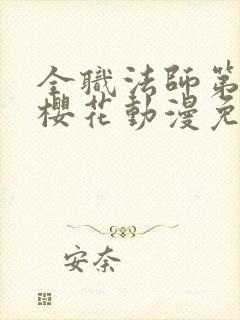 全職法師第
櫻花動漫免
安奈